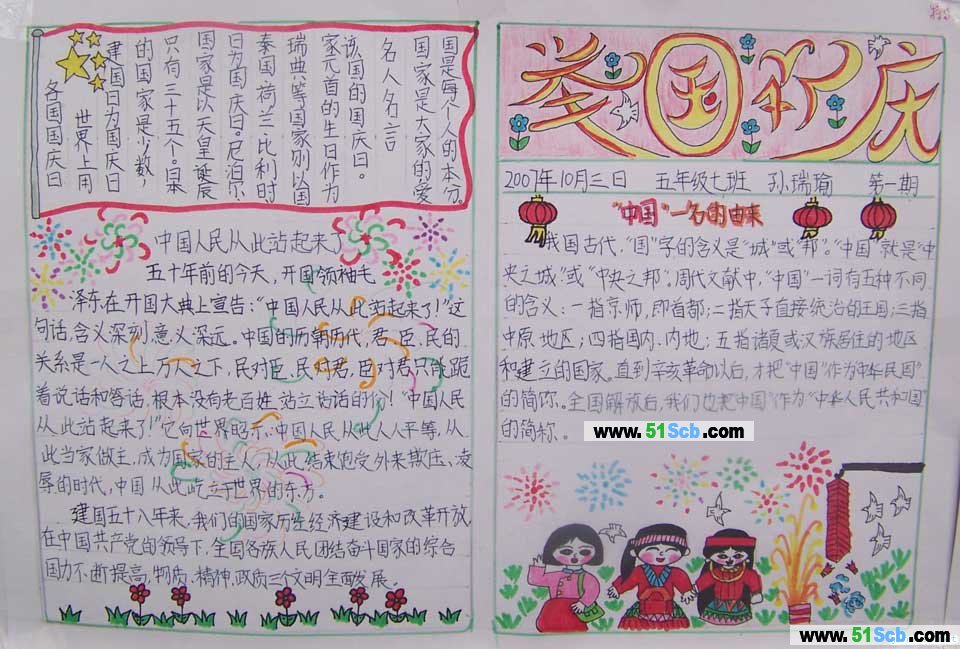 各国国庆日
世界上用
建国日为国庆日
的国家是少数，
只有三十五个。日本
国家是以天皇诞辰
日为国庆日。尼泊尔、
泰国、荷兰、比利时
瑞典等国家别以国
家元首的生日作为
该国的国庆日。
名人名言
国家是大家的爱
国是每个人的本分。
中国人民从此站起来了
五十年前的今天，开国领袖毛
泽东在开国大典上宣告：“中国人民从此站起来了！”这
句话，含义深刻，意义深远。中国的历朝历代，君、臣、民的
关系是一人之上万人之下，民对臣、民对君，臣对君只能跪
着说话和答话，根本没有老百姓站立说话的份！“中国人民
从此站起来了！”它向世界昭示：中国人民从此人人平等，从
此当家做主，成为国家的主人，从此结束饱受外来欺压、凌
辱的时代，中国从此屹立于世界的东方。
建国五十八年来，我们的国家历经经济建设和改革开放，
在中国共产党的领导下，全国各族人民团结奋斗国家的综合
国力不断提高，物质、精神、政质三个文明全面发展。
举国欢庆
2007年10月三日 五年级七班 孙瑞瑜 第一期
“中国”一名的由来
我国古代，“国”字的含义是“城”或“邦”。“中国”就是“中
央之城”或“中央之邦”。周代文献中，“中国”一词有五种不同
的含义：一指京师，即首都；二指天子直接统治的王国；三指
中原地区；四指国内、内地；五指诸夏或汉族居住的地区
和建立的国家。直到辛亥革命以后，才把“中国”作为“中华民国”
的简称。全国解放后，我们也把“中国”作为“中华人民共和国”
的简称。
www.51Scb.com
www.51Scb.com